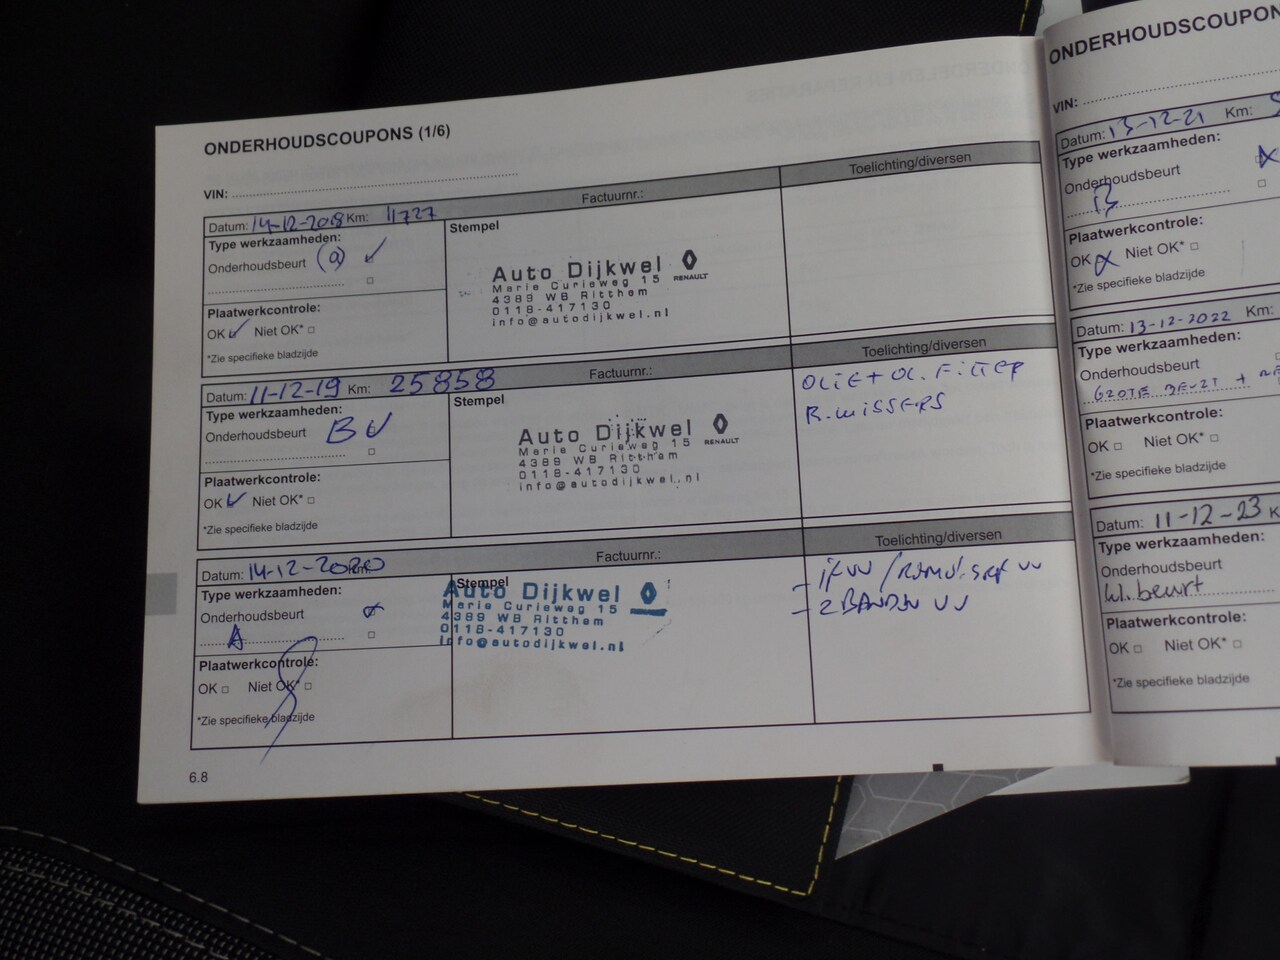 ONDERHOUDSCOUPONS (1/6)
VIN:
Datum: 14-12-2018 Km: 11727 Factuurnr.: Toelichting/diversen
Type werkzaamheden:
Onderhoudsbeurt (a)
Plaatwerkcontrole:
OK Niet OK*
*Zie specifieke bladzijde
Stempel
Auto Dijkwel
RENAULT
Marie Curieweg 15
4389 WB Ritthem
0118-417130
info@autodijkwel.nl
Datum: 11-12-19 Km: 25858 Factuurnr.: Toelichting/diversen
Type werkzaamheden:
Onderhoudsbeurt B
Plaatwerkcontrole:
OK Niet OK*
*Zie specifieke bladzijde
Stempel
Auto Dijkwel
RENAULT
Marie Curieweg 15
4389 WB Ritthem
0118-417130
info@autodijkwel.nl
OLIE + OL. FILTER
R.WISSERS
Datum: 14-12-2020 Km: Factuurnr.: Toelichting/diversen
Type werkzaamheden:
Onderhoudsbeurt
A
Plaatwerkcontrole:
OK Niet OK*
*Zie specifieke bladzijde
Stempel
Auto Dijkwel
Marie Curieweg 15
4389 WB Ritthem
0118-417130
info@autodijkwel.nl
- 2 BANDEN VV
6.8
ONDERHOUDSCOUPON
VIN:
Datum: 13-12-21 Km:
Type werkzaamheden:
Onderhoudsbeurt
B
Plaatwerkcontrole:
OK Niet OK*
*Zie specifieke bladzijde
Datum: 13-12-2022 Km:
Type werkzaamheden:
Onderhoudsbeurt
GROTE BEURT +
Plaatwerkcontrole:
OK Niet OK*
*Zie specifieke bladzijde
Datum: 11-12-23
Type werkzaamheden:
Onderhoudsbeurt
kl. beurt
Plaatwerkcontrole:
OK Niet OK*
*Zie specifieke bladzijde